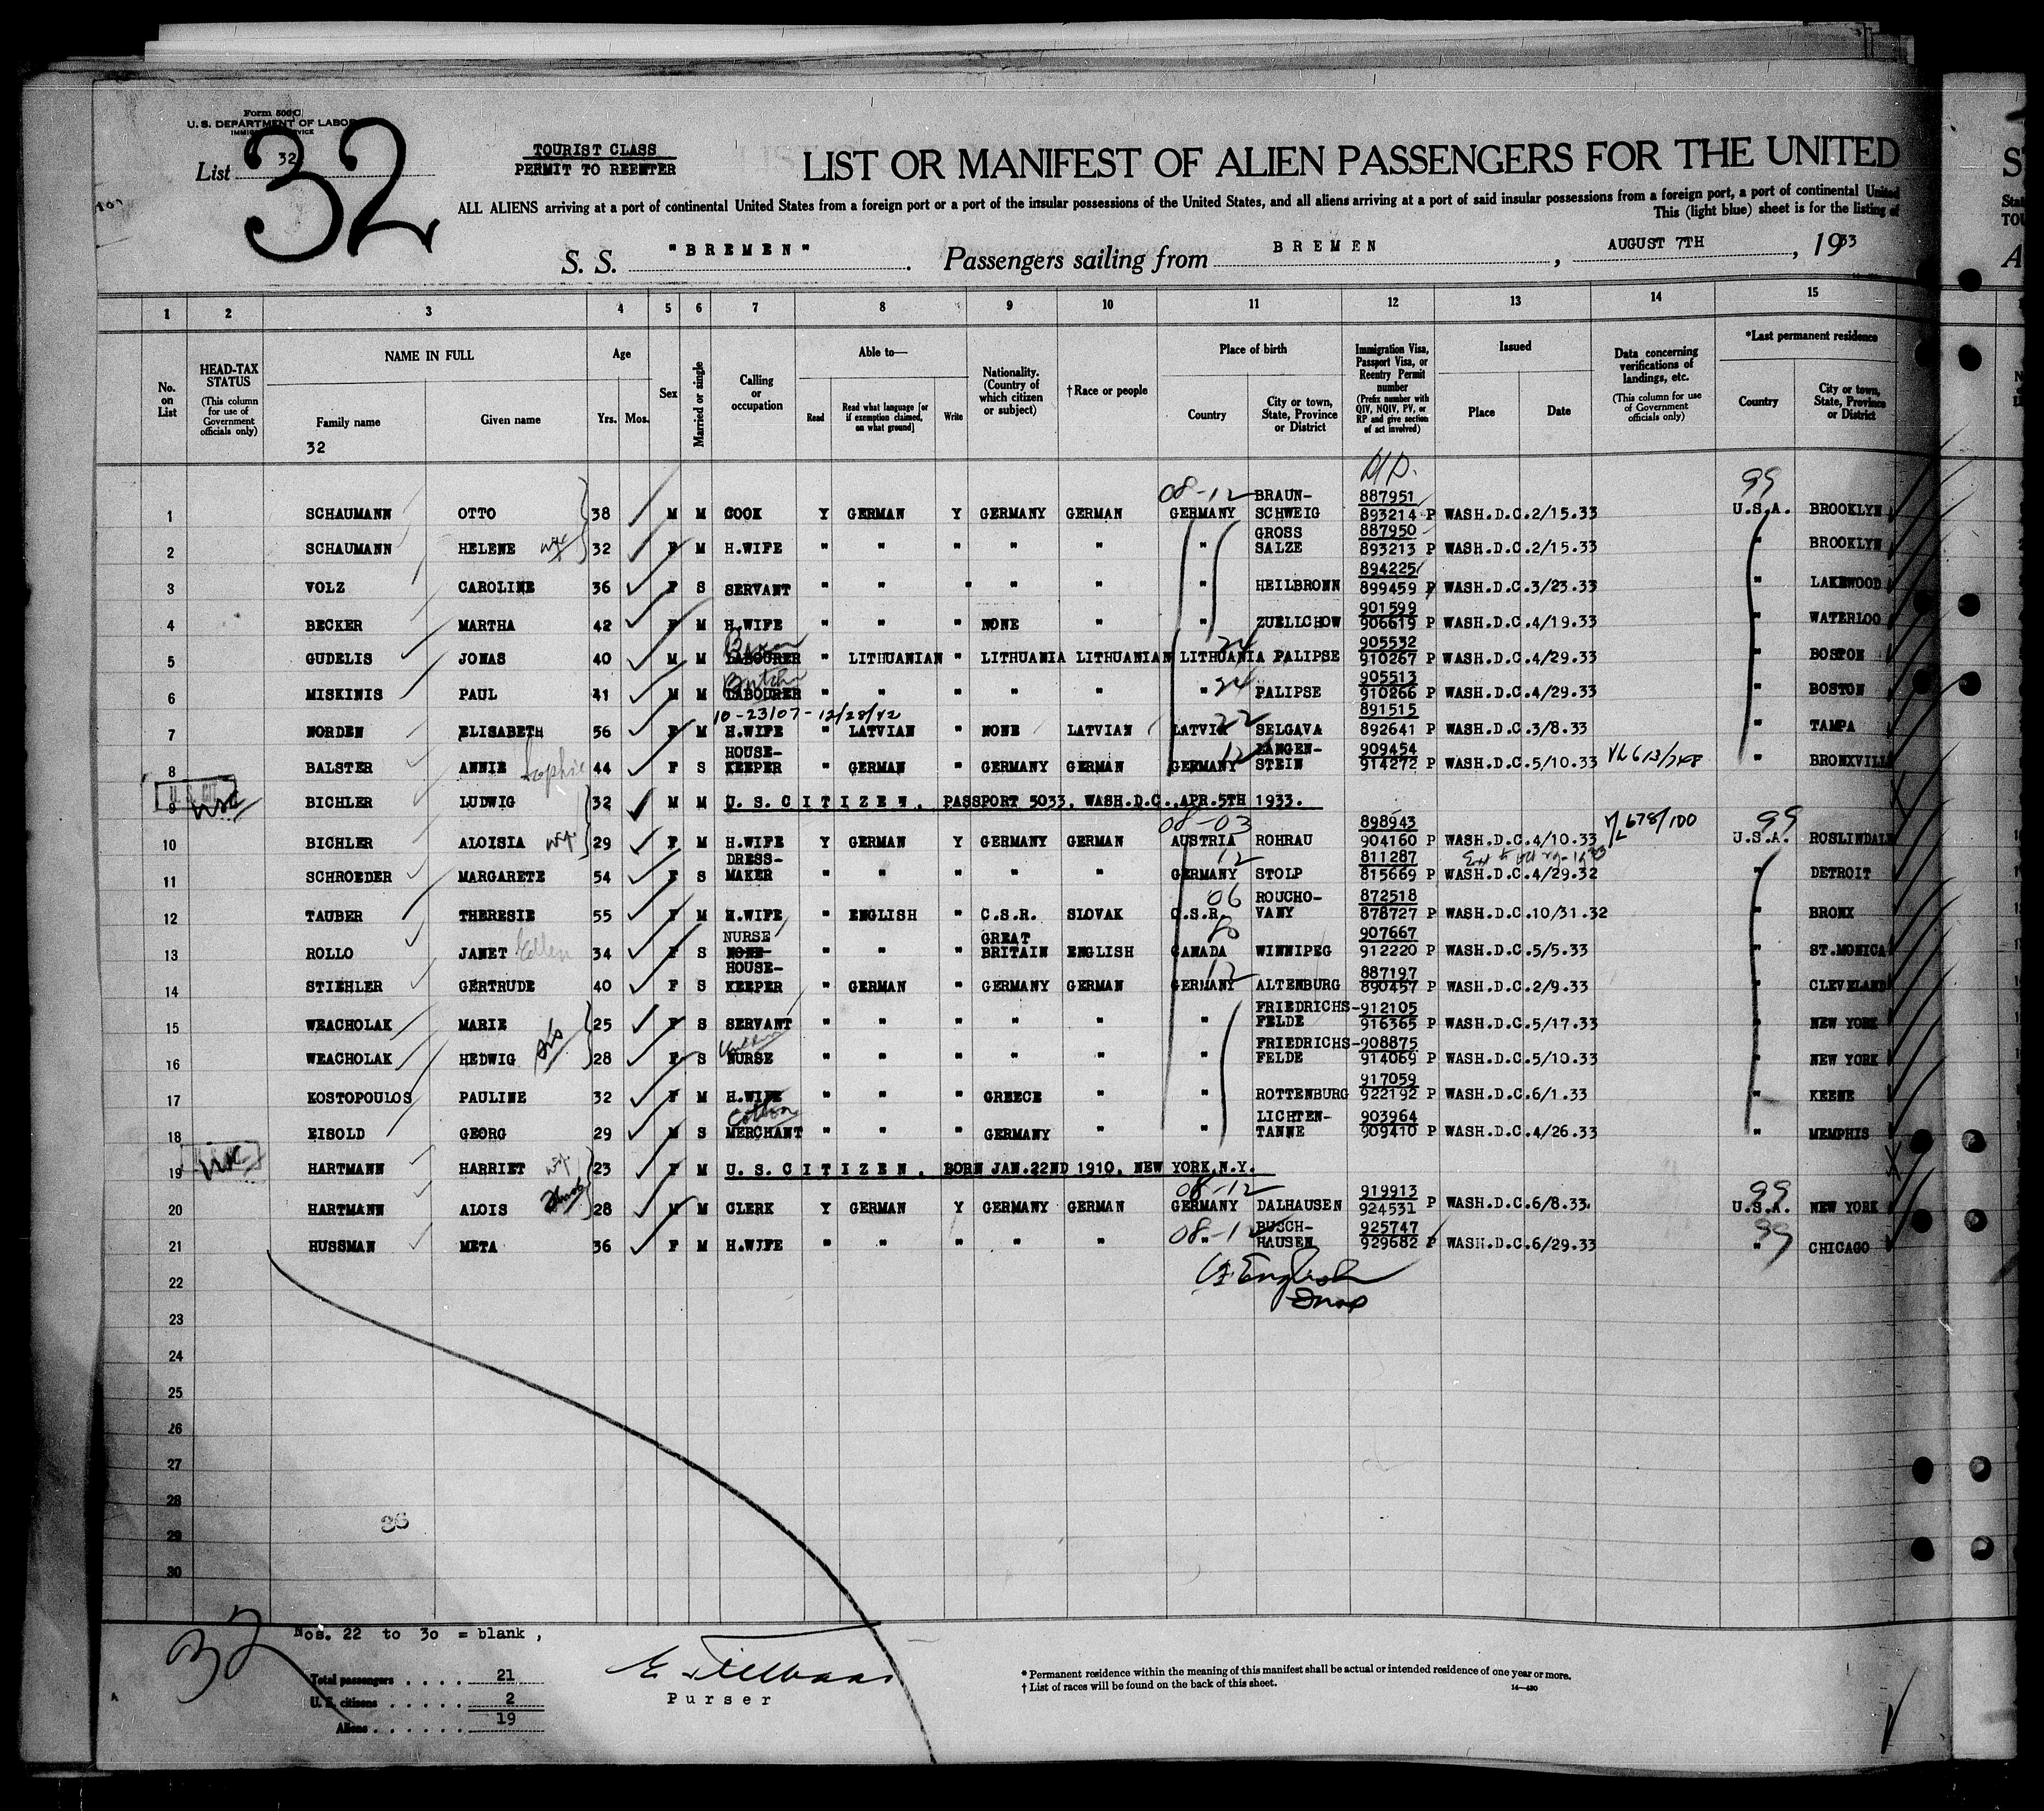 Form 500 C
U. S. DEPARTMENT OF LABOR
List 32
32
TOURIST CLASS
PERMIT TO REENTER
LIST OR MANIFEST OF ALIEN PASSENGERS FOR THE UNITED
ALL ALIENS arriving at a port of continental United States from a foreign port or a port of the insular possessions of the United States, and all aliens arriving at a port of said insular possessions from a foreign port, a port of continental United
This (light blue) sheet is for the listing of
S. S. "BREMEN". Passengers sailing from BREMEN, AUGUST 7TH, 1933
1 2 3 4 5 6 7 8 9 10 11 12 13 14 15
No. on List
HEAD-TAX STATUS (This column for use of Government officials only)
NAME IN FULL Family name Given name
Age Yrs. Mos.
Sex
Married or single
Calling or occupation
Able to— Read Read what language [or if exemption claimed, on what ground] Write
Nationality. (Country of which citizen or subject)
† Race or people
Place of birth Country City or town, State, Province or District
Immigration Visa, Passport Visa, or Reentry Permit number (Prefix number with QIV, NQIV, PV, or RP and give section of act involved)
Issued Place Date
Data concerning verifications of landings, etc. (This column for use of Government officials only)
*Last permanent residence Country City or town, State, Province or District
32
1 SCHAUMANN OTTO 38 M M COOK Y GERMAN Y GERMANY GERMAN 08-12 GERMANY BRAUN-SCHWEIG 887951 893214 P WASH.D.C. 2/15.33 99 U.S.A. BROOKLYN
2 SCHAUMANN HELENE 32 F M H.WIFE " " " " " " GROSS SALZE 887950 893213 P WASH.D.C. 2/15.33 " BROOKLYN
3 VOLZ CAROLINE 36 F S SERVANT " " " " " " HEILBRONN 894225 899459 P WASH.D.C. 3/23.33 " LAKEWOOD
4 BECKER MARTHA 42 F M H.WIFE " " " NONE " " ZUELLCHOW 901599 906619 P WASH.D.C. 4/19.33 " WATERLOO
5 GUDELIS JONAS 40 M M LABOURER " LITHUANIAN " LITHUANIA LITHUANIAN LITHUANIA 24 PALIPSE 905532 910267 P WASH.D.C. 4/29.33 " BOSTON
6 MISKINIS PAUL 41 M M LABOURER " " " " " " 24 PALIPSE 905513 910266 P WASH.D.C. 4/29.33 " BOSTON
10-23107-12/28/42
7 NORDEN ELISABETH 56 F M H.WIFE " LATVIAN " NONE LATVIAN LATVIA 22 SELGAVA 891515 892641 P WASH.D.C. 3/8.33 " TAMPA
8 BALSTER ANNIE Sophie 44 F S HOUSE-KEEPER " GERMAN " GERMANY GERMAN GERMANY 12 LANGEN-STEIN 909454 914272 P WASH.D.C. 5/10.33 " BRONXVILLE
9 USC BICHLER LUDWIG 32 M M U.S. CITIZEN, PASSPORT 5033, WASH.D.C., APR.5TH 1933.
10 BICHLER ALOISIA 29 F M H.WIFE Y GERMAN Y GERMANY GERMAN 08-03 AUSTRIA ROHRAU 898943 904160 P WASH.D.C. 4/10.33 V/L 678/100 99 U.S.A. ROSLINDALE
11 SCHROEDER MARGARETE 54 F S DRESS-MAKER " " " " " 12 GERMANY STOLP 811287 815669 P WASH.D.C. 4/29.32 " DETROIT
12 TAUBER THERESIE 55 F M H.WIFE " ENGLISH " C.S.R. SLOVAK C.S.R. 06 ROUCHO-VANY 872518 878727 P WASH.D.C. 10/31.32 " BRONX
13 ROLLO JANET Ellen 34 F S NURSE NONE " " " GREAT BRITAIN ENGLISH CANADA WINNIPEG 907667 912220 P WASH.D.C. 5/5.33 " ST.MONICA
14 STIEHLER GERTRUDE 40 F S HOUSE-KEEPER " GERMAN " GERMANY GERMAN GERMANY 12 ALTENBURG 887197 890457 P WASH.D.C. 2/9.33 " CLEVELAND
15 WRACHOLAK MARIE 25 F S SERVANT " " " " " " FRIEDRICHS-FELDE 912105 916365 P WASH.D.C. 5/17.33 " NEW YORK
16 WRACHOLAK HEDWIG sis 28 F S NURSE " " " " " " FRIEDRICHS-FELDE 908875 914069 P WASH.D.C. 5/10.33 " NEW YORK
17 KOSTOPOULOS PAULINE 32 F M H.WIFE " " " GREECE " " ROTTENBURG 917059 922192 P WASH.D.C. 6/1.33 " KEENE
18 EISOLD GEORG 29 M S Cotton MERCHANT " " " GERMANY " " LICHTEN-TANNE 903964 909410 P WASH.D.C. 4/26.33 " MEMPHIS
19 USC HARTMANN HARRIET 23 F M U.S. CITIZEN, BORN JAN.22ND 1910, NEW YORK,N.Y.
20 HARTMANN ALOIS 28 M M CLERK Y GERMAN Y GERMANY GERMAN 08-12 GERMANY DALHAUSEN 919913 924531 P WASH.D.C. 6/8.33. 99 U.S.A. NEW YORK
21 HUSSMAN META 36 F M H.WIFE " " " " " 08-12 " BUSCH-HAUSEN 925747 929682 P WASH.D.C. 6/29.33 99 " CHICAGO
22
23
24
25
26
27
28
29
30
36
32
Nos. 22 to 30 = blank,
Total passengers . . . . 21
U. S. citizens . . . . . 2
Aliens . . . . . . 19
Purser
* Permanent residence within the meaning of this manifest shall be actual or intended residence of one year or more.
† List of races will be found on the back of this sheet.
14—430